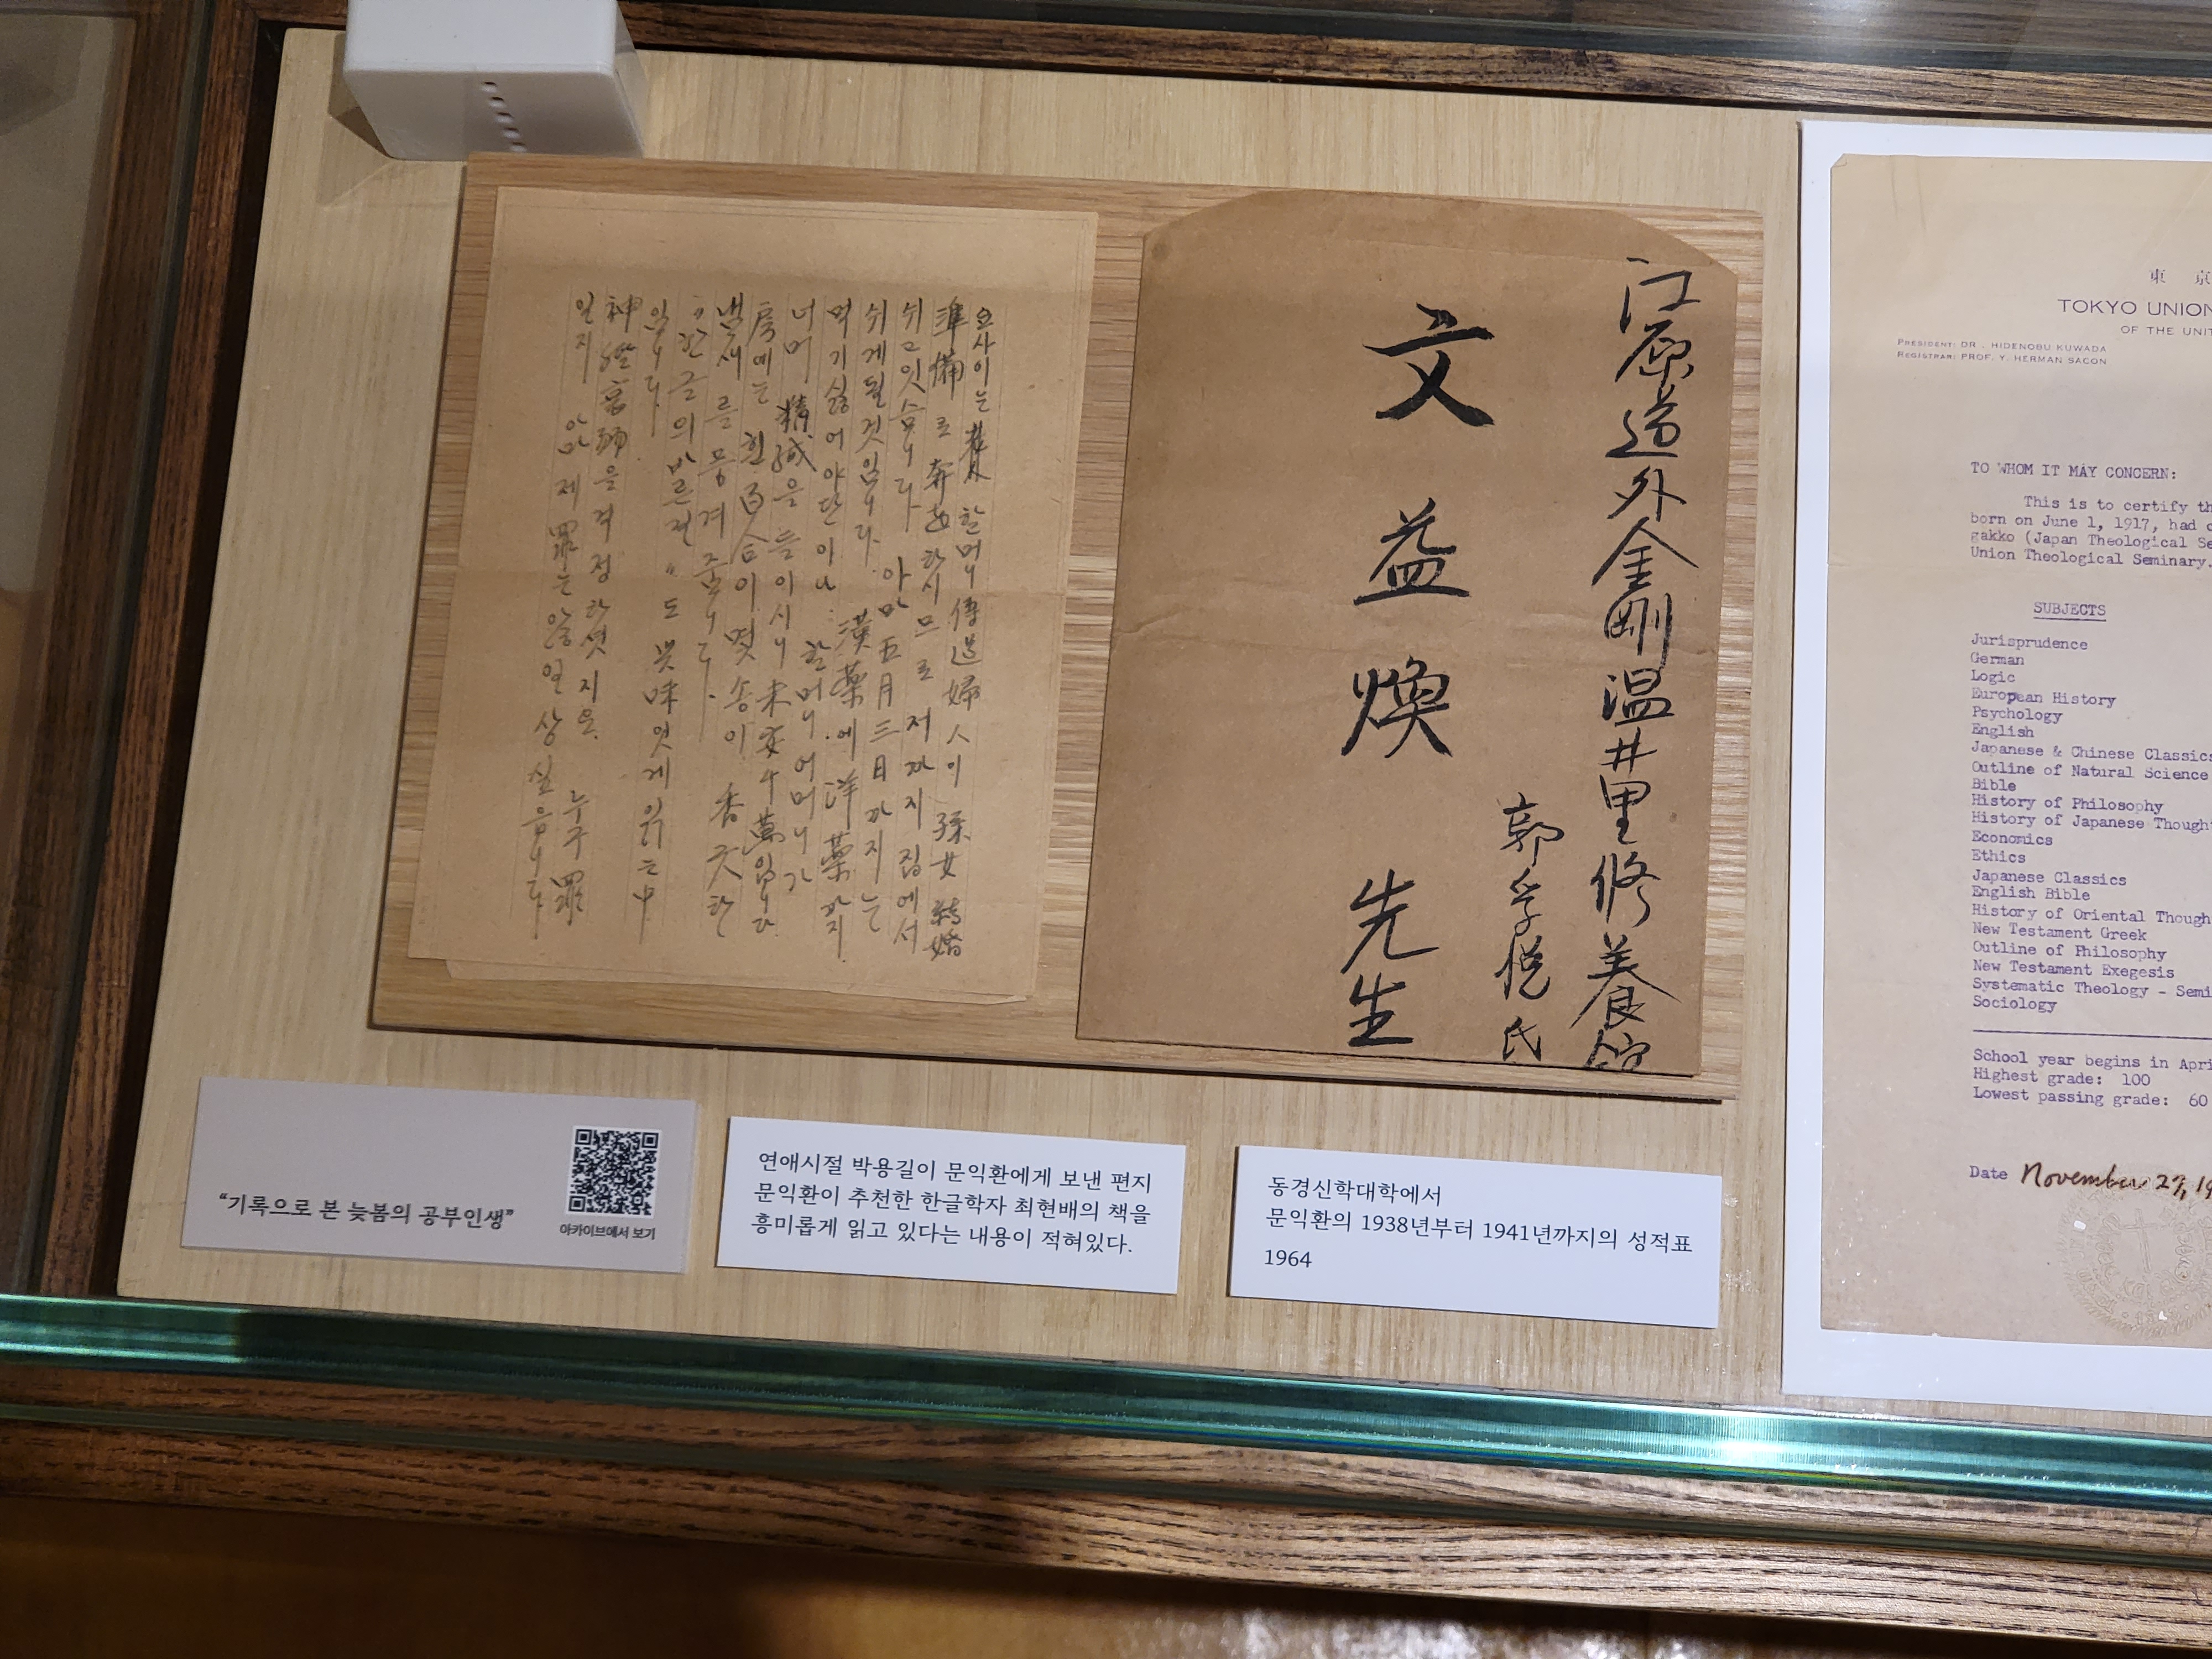 요사이는 裵 할머니 傳道婦人이 孫女 結婚
準備로 奔走하시므로 저까지 집에서
쉬고 잇슴니다. 아마 五月 三日까지는
쉬게 될 것임니다. 漢藥에 洋藥까지
먹기 싫어 야단이나 할머니 어머니가
너머 精誠을 들이시니 未安千萬임니다
房에는 흰 百合이 몇 송이 香긋한
냄새를 풍겨 줌니다.
"한글의 바른 전" 도 興味 잇게 읽는 中
임니다.
神經衰弱을 걱정하셧지요. 누구 罪
일지 아마 제 罪는 않 연상 싶읍니다
江原道外金剛温井里修養館
郭孚悅氏
文益煥 先生
東 京
TOKYO UNION
OF THE UNIT
PRESIDENT: DR. HIDENOBU KUWADA
REGISTRAR: PROF. Y. HERMAN SACON
TO WHOM IT MAY CONCERN:
This is to certify th
born on June 1, 1917, had c
gakko (Japan Theological Se
Union Theological Seminary.
SUBJECTS
Jurisprudence
German
Logic
European History
Psychology
English
Japanese & Chinese Classics
Outline of Natural Science
Bible
History of Philosophy
History of Japanese Thought
Economics
Ethics
Japanese Classics
English Bible
History of Oriental Though
New Testament Greek
Outline of Philosophy
New Testament Exegesis
Systematic Theology - Semi
Sociology
School year begins in Apri
Highest grade: 100
Lowest passing grade: 60
Date November 27, 19
“기록으로 본 늦봄의 공부인생”
아카이브에서 보기
연애시절 박용길이 문익환에게 보낸 편지
문익환이 추천한 한글학자 최현배의 책을
흥미롭게 읽고 있다는 내용이 적혀있다.
동경신학대학에서
문익환의 1938년부터 1941년까지의 성적표
1964